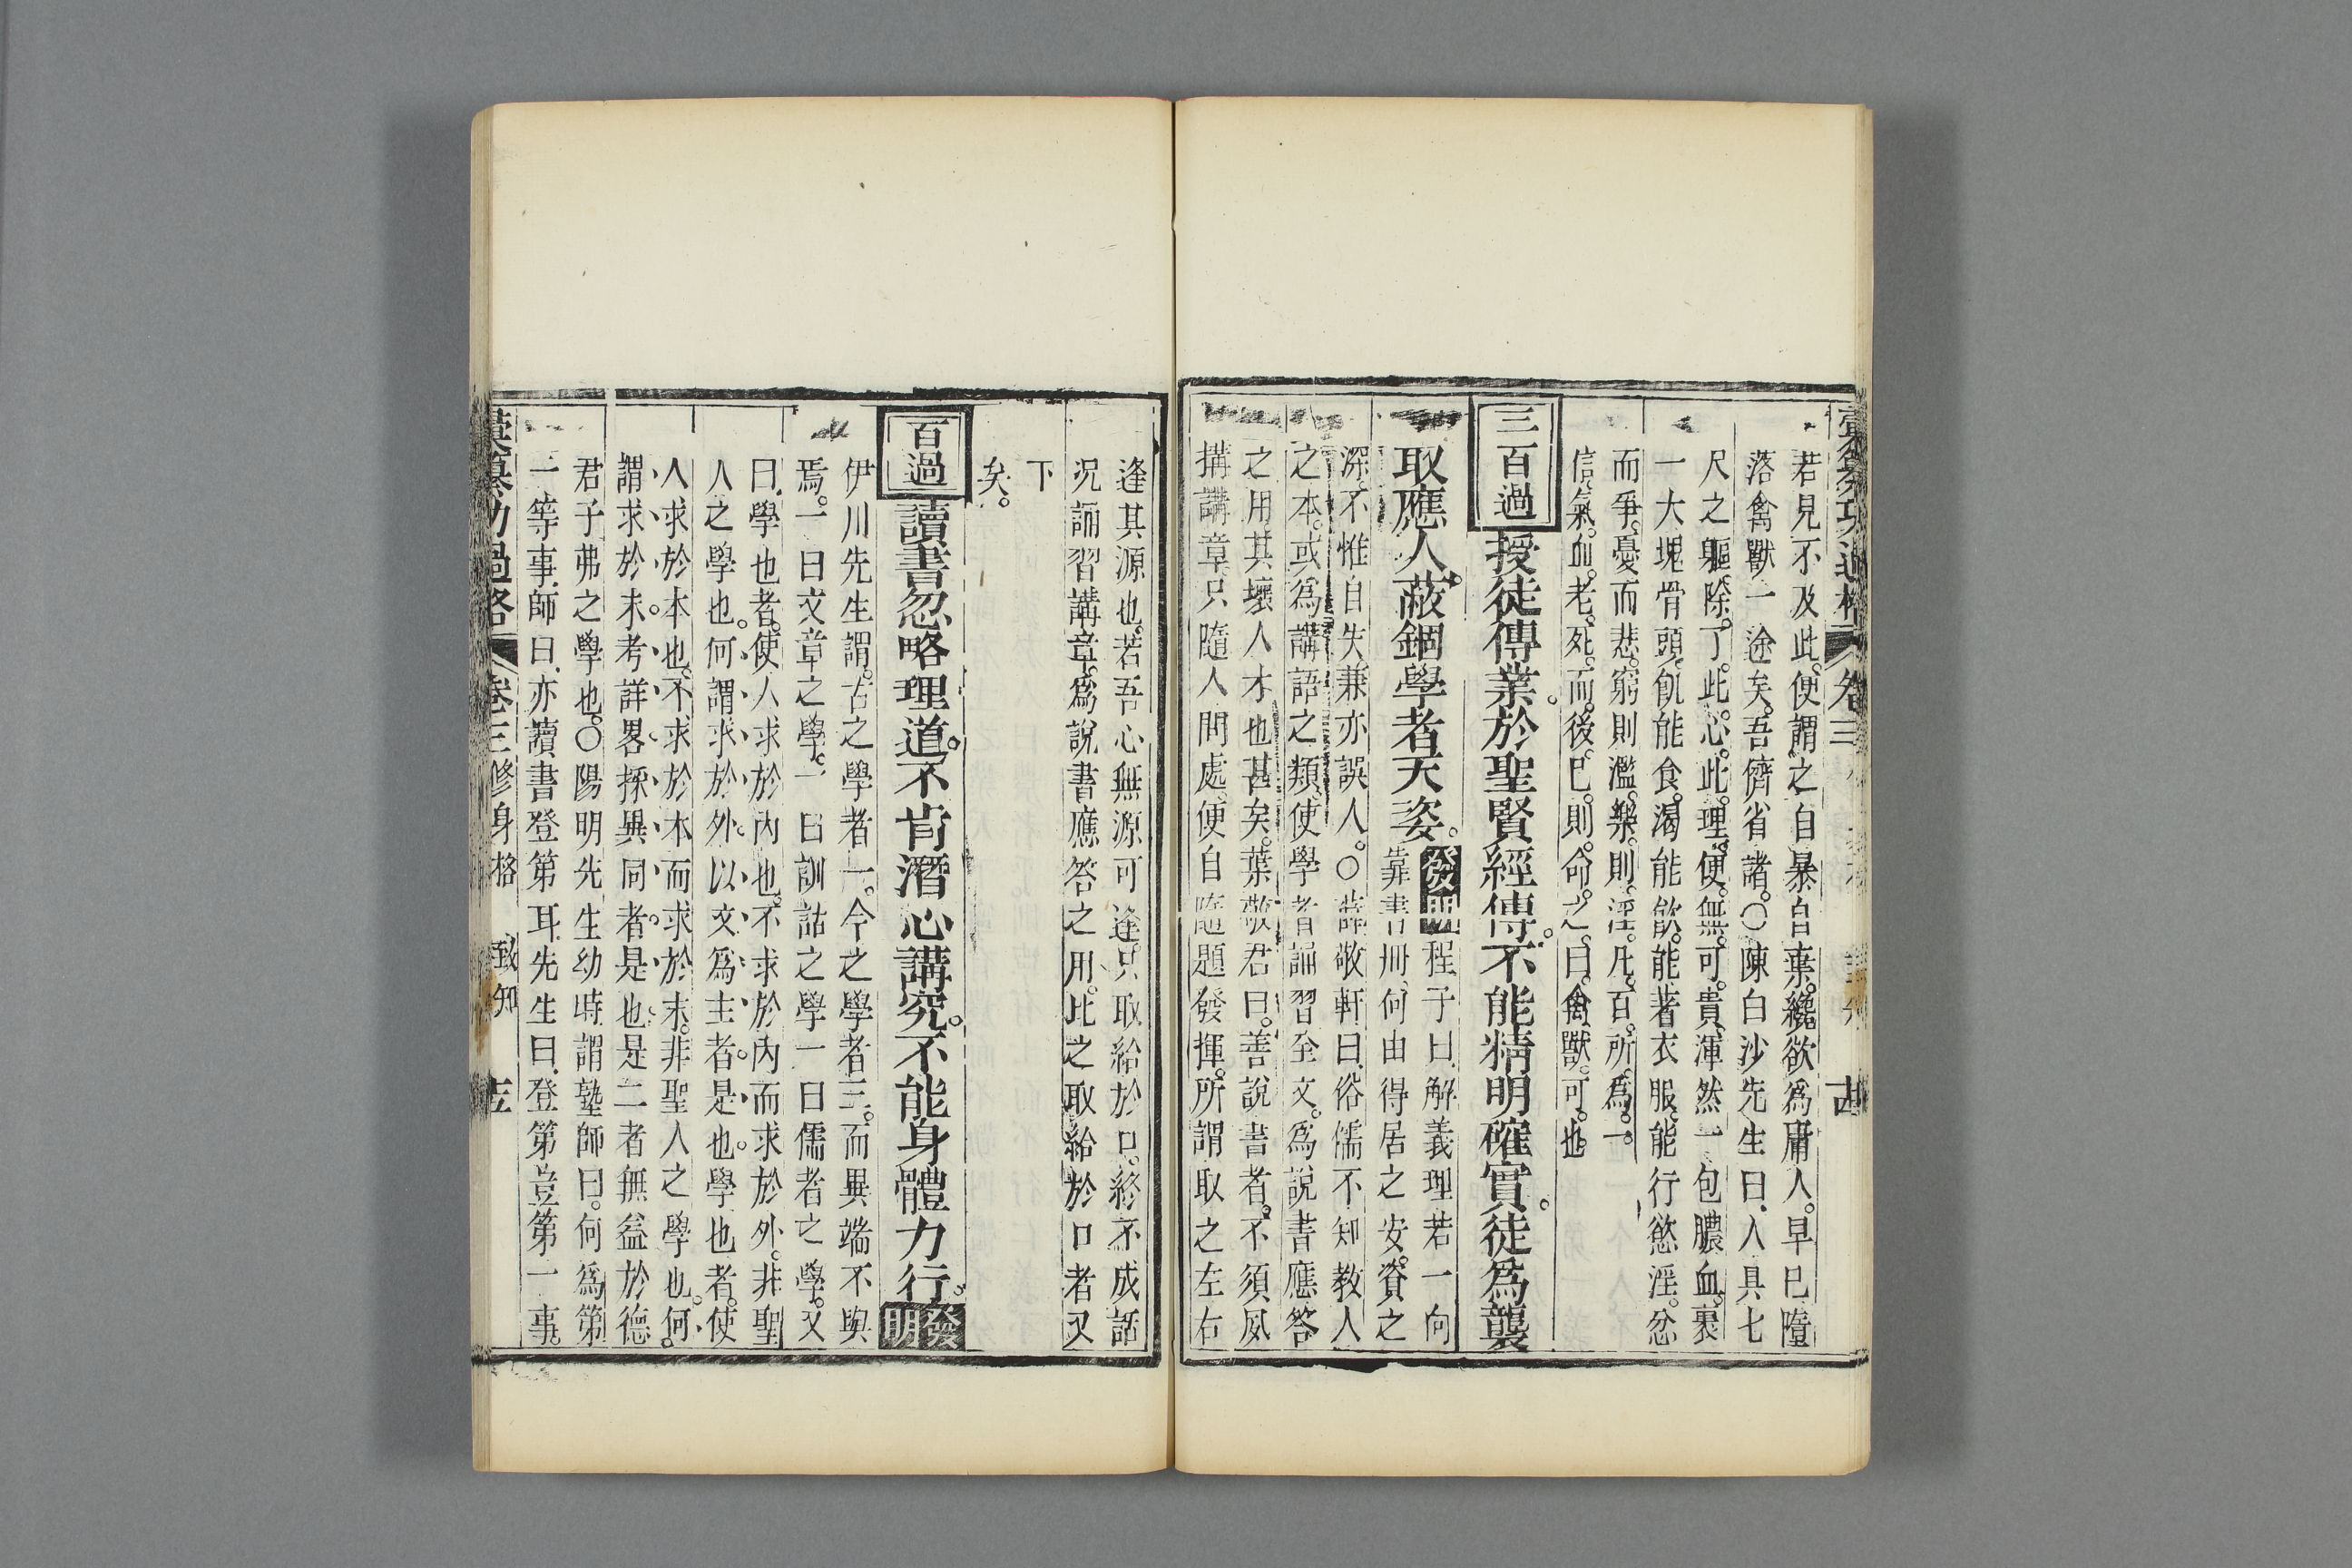 若見不及此。便謂之自暴自棄。纔欲為庸人。早已墮
落禽獸一途矣。吾儕省諸。〇陳白沙先生曰、人具七
尺之軀。除。了。此。心。此。理。便。無。可。貴、渾然一包膿血。裹
一大塊骨頭。飢能食。渴能飲。能著衣服。能行慾淫。忿
而爭。憂而悲。窮則濫。樂。則。淫。凡。百。所。為。一。
信。氣。血。老。死。而。後。已。則。命。之。曰。禽。獸。可。也。
三百過
授徒傳業。於聖賢經傳。不能精明確實。徒為襲
取應人。蔽錮學者天姿。發明
程子曰、解義理若一向
靠書冊、何由得居之安。資之
深。不惟自失、兼亦誤人。〇薛敬軒曰、俗儒不知教人
之本。或為講語之類、使學者誦習全文。為說書應答
之用、其壞人才也甚矣。葉敬君曰。善說書者。不須夙
搆講章、只隨人問處、便自隨題發揮。所謂取之左右
逢其源也。若吾心無源可逢。只取給於口。終不成話
況誦習講章。為說書應答之用。此之取給於口者又
下
矣。
百過
讀書忽略理道。不肯潛心講究。不能身體力行。發明
伊川先生謂。古之學者一。今之學者三。而異端不與
焉。一曰文章之學。一曰訓詁之學一曰儒者之學。又
曰、學也者。使人求於內也。不求於內而求於外。非聖
人之學也。何謂求於外。以文為主者。是也。學也者。使
人求於本也。不求於本而求於末。非聖人之學也。何。
謂求於末。考詳畧採異同者。是也是二者無益於德
君子弗之學也。〇陽明先生幼時謂塾師曰。何為第
一等事。師曰、亦讀書登第耳先生曰、登第豈第一事。
彙纂功過格 卷三 修身格 致知 五